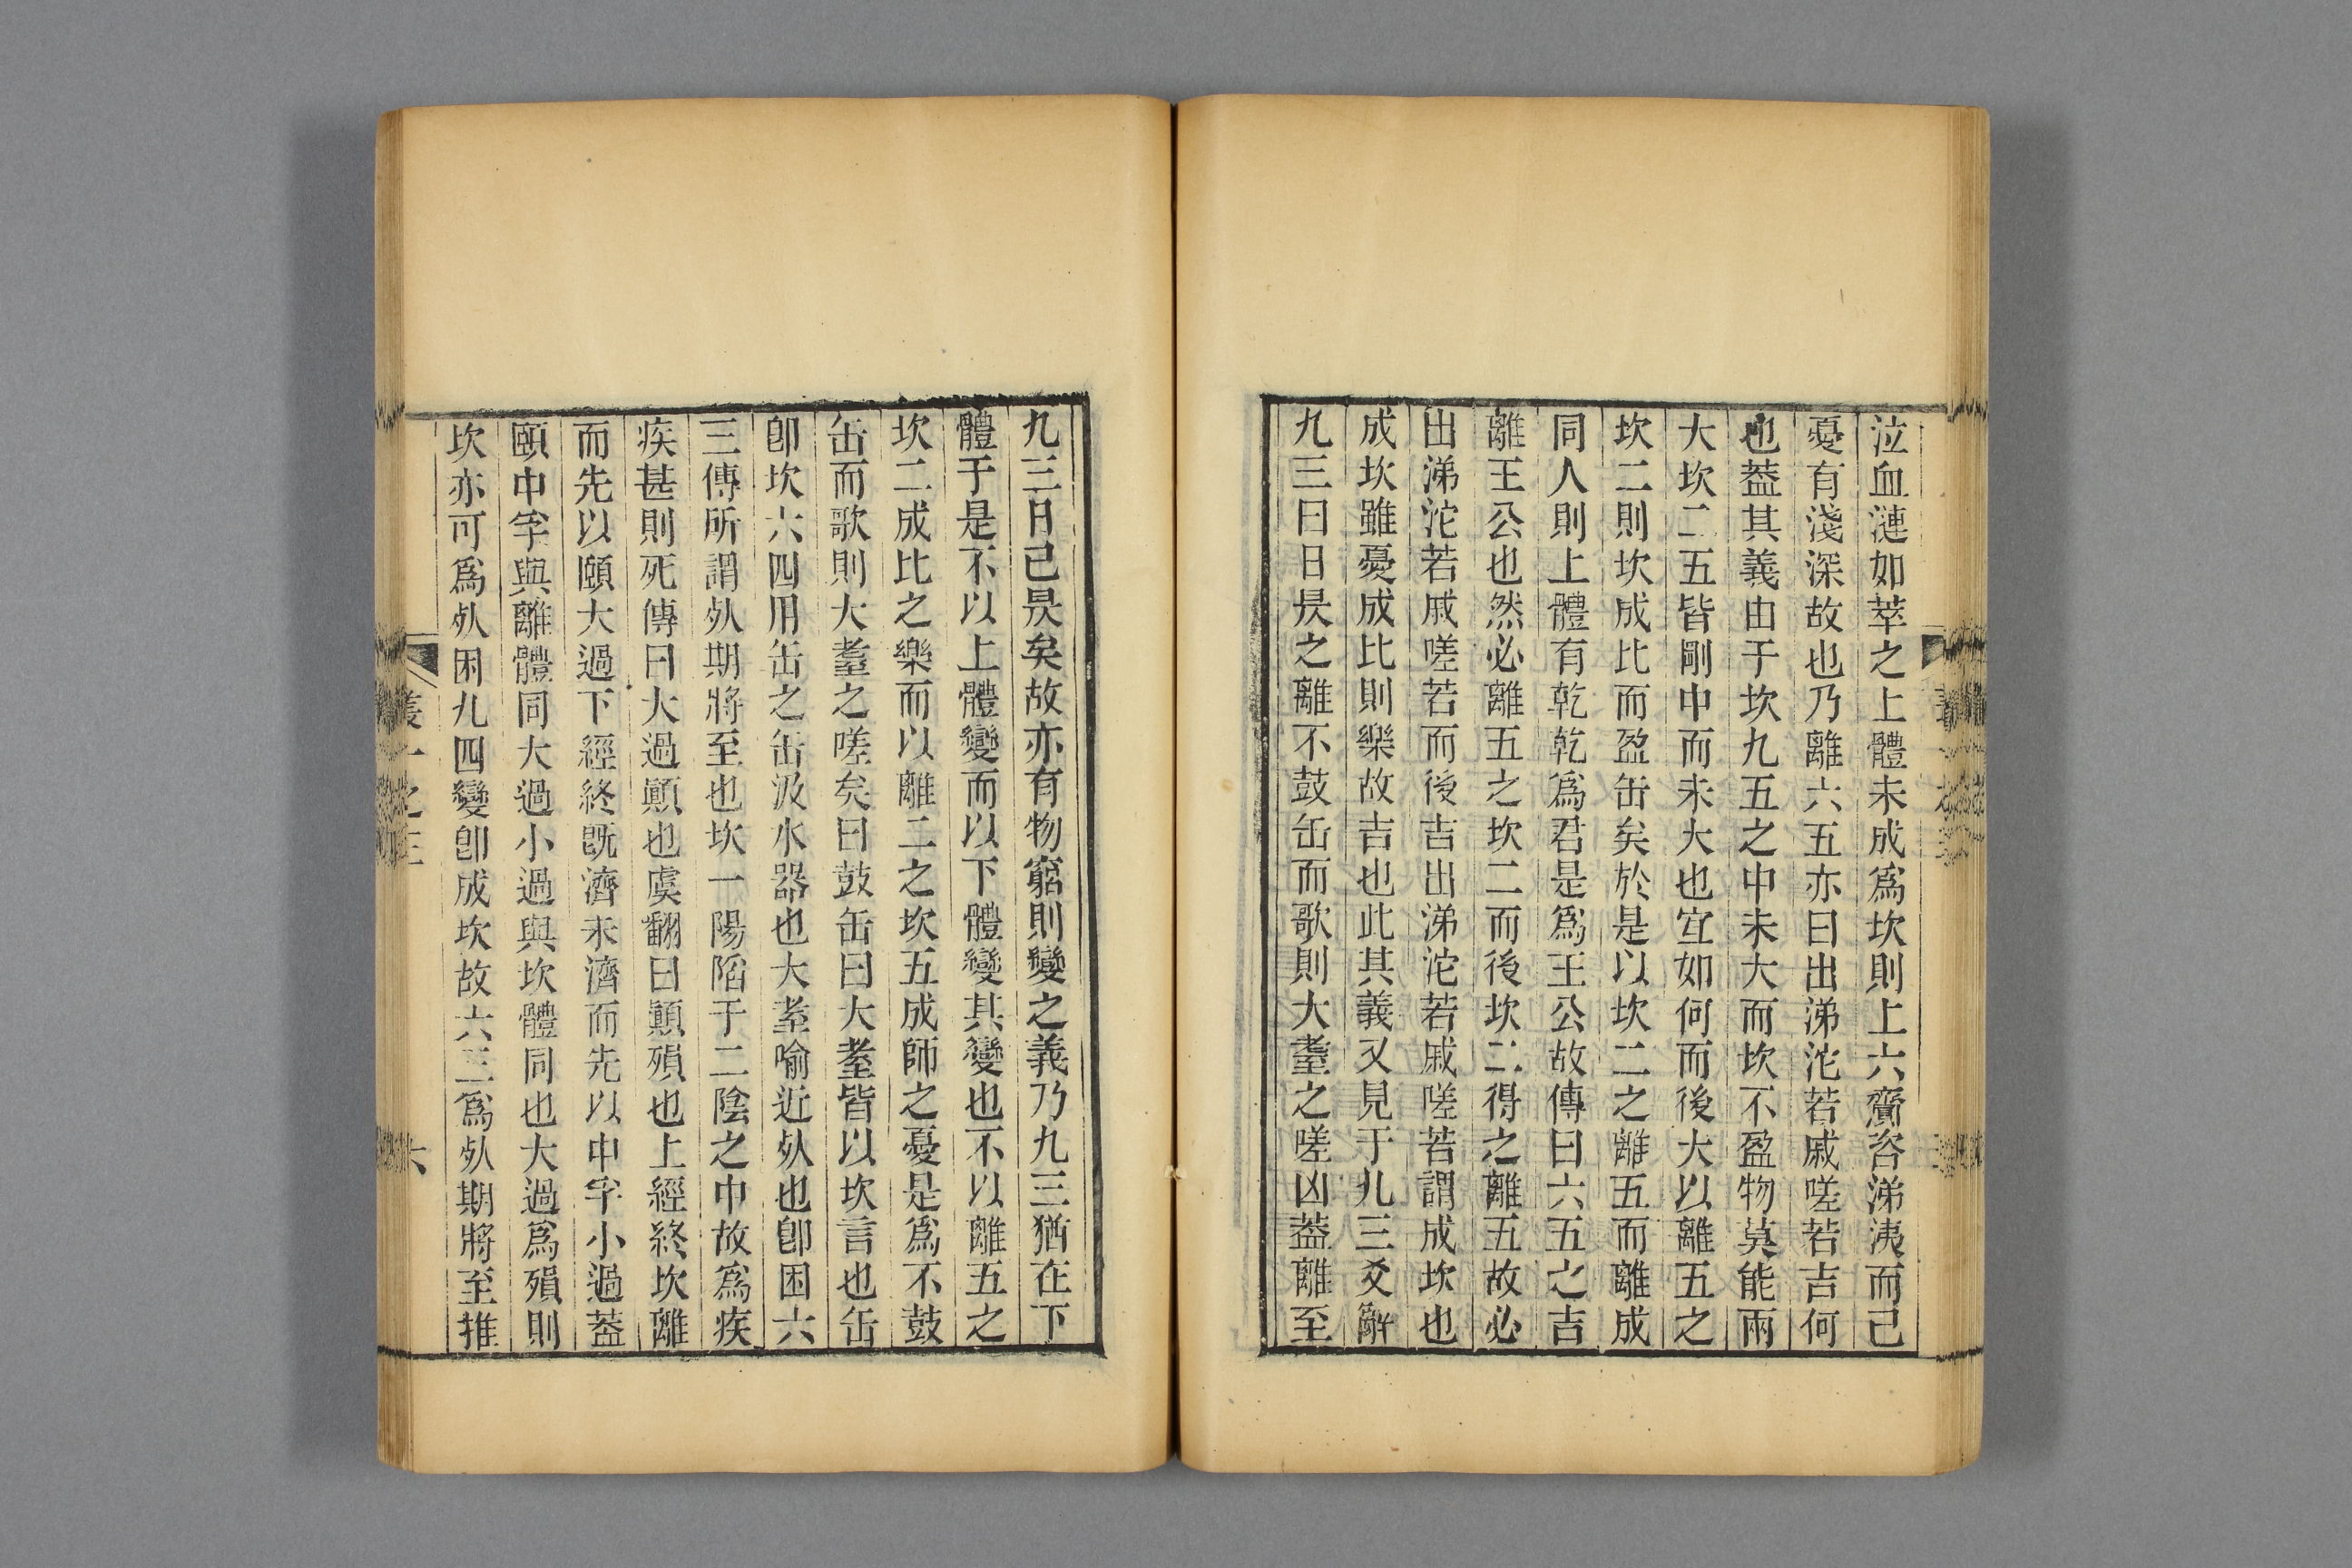 泣血漣如萃之上體未成爲坎則上六齎咨涕洟而已
憂有淺深故也乃離六五亦曰出涕沱若戚嗟若吉何
也葢其義由于坎九五之中未大而坎不盈物莫能兩
大坎二五皆剛中而未大也宜如何而後大以離五之
坎二則坎成比而盈缶矣於是以坎二之離五而離成
同人則上體有乾乾爲君是爲王公故傳曰六五之吉
離王公也然必離五之坎二而後坎二得之離五故必
出涕沱若戚嗟若而後吉出涕沱若戚嗟若謂成坎也
成坎雖憂成比則樂故吉也此其義又見于九三爻辭
九三曰日昃之離不鼓缶而歌則大耋之嗟凶葢離至
九三日己昃矣故亦有物窮則變之義乃九三猶在下
體于是不以上體變而以下體變其變也不以離五之
坎二成比之樂而以離二之坎五成師之憂是爲不鼓
缶而歌則大耋之嗟矣曰鼓缶曰大耋皆以坎言也缶
卽坎六四用缶之缶汲水器也大耋喻近㱙也卽困六
三傳所謂㱙期將至也坎一陽陷于二陰之中故爲疾
疾甚則死傳曰大過顚也虞翻曰顚殞也上經終坎離
而先以頤大過下經終旣濟未濟而先以中孚小過葢
頤中孚與離體同大過小過與坎體同也大過爲殞則
坎亦可爲㱙困九四變卽成坎故六三爲㱙期將至推
叢一之三
六